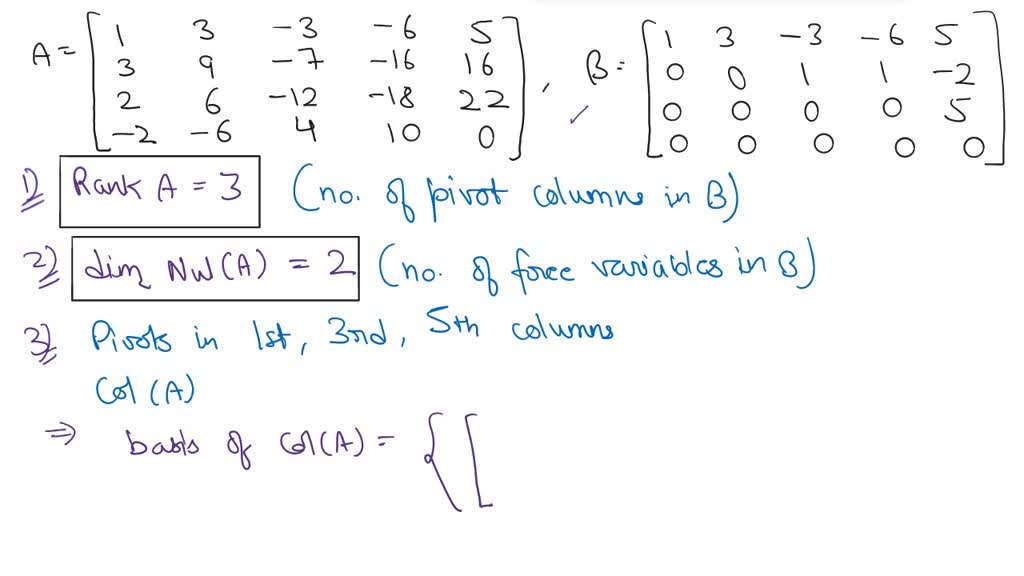 A = [ 1 3 -3 -6 5 ] , B = [ 1 3 -3 -6 5 ]
3 9 -7 -16 16 0 0 1 1 -2
2 6 -12 -18 22 0 0 0 0 5
-2 -6 4 10 0 0 0 0 0 0
1) Rank A = 3 (no. of pivot columns in B)
2) dim Nul(A) = 2 (no. of free variables in B)
3) Pivots in 1st, 3rd, 5th columns
Col (A)
⇒ basis of Col(A) = { [